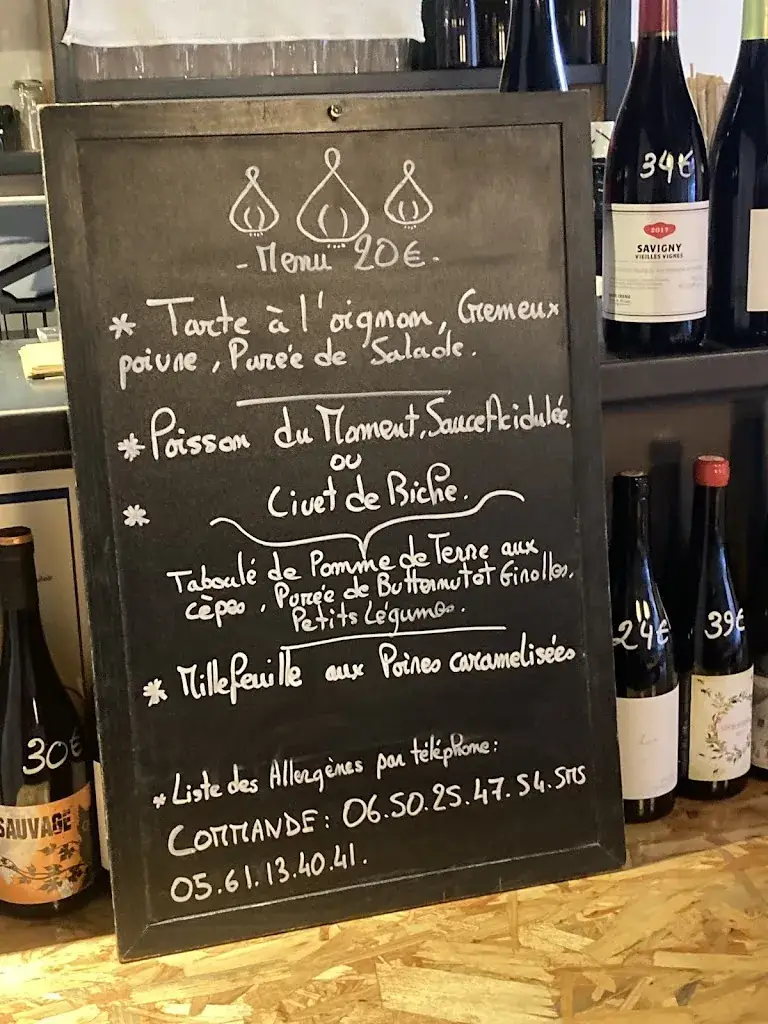 - Menu 20€ -
* Tarte à l'oignon, Cremeux
poivre, Purée de Salade.
* Poisson du Moment, Sauce Acidulée
ou
* Civet de Biche.
Taboulé de Pomme de Terre aux
cèpes, Purée de Butternut et Girolles,
Petits Légumes.
* Millefeuille aux Poires caramelisées
* Liste des Allergènes par téléphone:
COMMANDE: 06.50.25.47.54.SMS
05.61.13.40.41.
34€
2017
SAVIGNY
VIEILLES VIGNES
24€
39€
30€
SAUVAGE